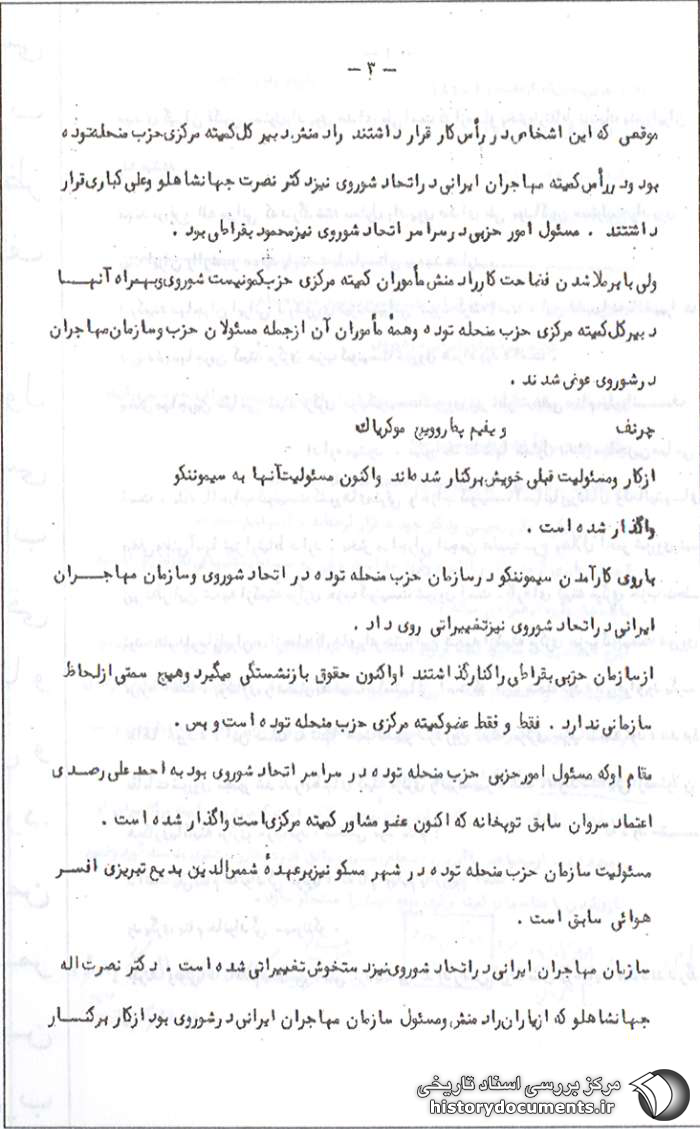 — ۳ —
موقعی که این اشخاص در رأس کار قرار داشتند راد منش دبیر کل کمیته مرکزی حزب منحله توده
بود ودر رأس کمیته مهاجران ایرانی در اتحاد شوروی نیز دکتر نصرت جهانشاهلو وعلی کباری قرار
داشتند . مسئول امور حزبی در سراسر اتحاد شوروی نیز محمود بقراطی بود .
ولی با برملا شدن فضاحت کار راد منش مأموران کمیته مرکزی حزب کمونیست شوروی وبهمراه آنها
دبیر کل کمیته مرکزی حزب منحله توده وهمه مأموران آن از جمله مسئولان حزب وسازمان مهاجران
در شوروی عوض شدند .
چرنف ویفیم پتاروویچ موکریاک
از کار ومسئولیت قبلی خویش برکنار شده اند واکنون مسئولیت آنها به سیموننکو
واگذار شده است .
باروی کار آمدن سیموننکو در سازمان حزب منحله توده در اتحاد شوروی وسازمان مهاجران
ایرانی در اتحاد شوروی نیز تغییراتی روی داد .
از سازمان حزبی بقراطی را کنار گذاشتند او اکنون حقوق بازنشستگی میگیرد وهیچ سمتی از لحاظ
سازمانی ندارد . فقط و فقط عضو کمیته مرکزی حزب منحله توده است و بس .
مقام اوکه مسئول امور حزبی حزب منحله توده در سراسر اتحاد شوروی بود به احمد علی رصدی
اعتماد سروان سابق توپخانه که اکنون عضو مشاور کمیته مرکزی است واگذار شده است .
مسئولیت سازمان حزب منحله توده در شهر مسکو نیز برعهدهٔ شمس الدین بدیع تبریزی افسر
هوائی سابق است .
سازمان مهاجران ایرانی در اتحاد شوروی نیز دستخوش تغییراتی شده است . دکتر نصرت اله
جهانشاهلو که از یاران راد منش ومسئول سازمان مهاجران ایرانی در شوروی بود از کار برکنار
مرکز بررسی اسناد تاریخی
historydocuments.ir